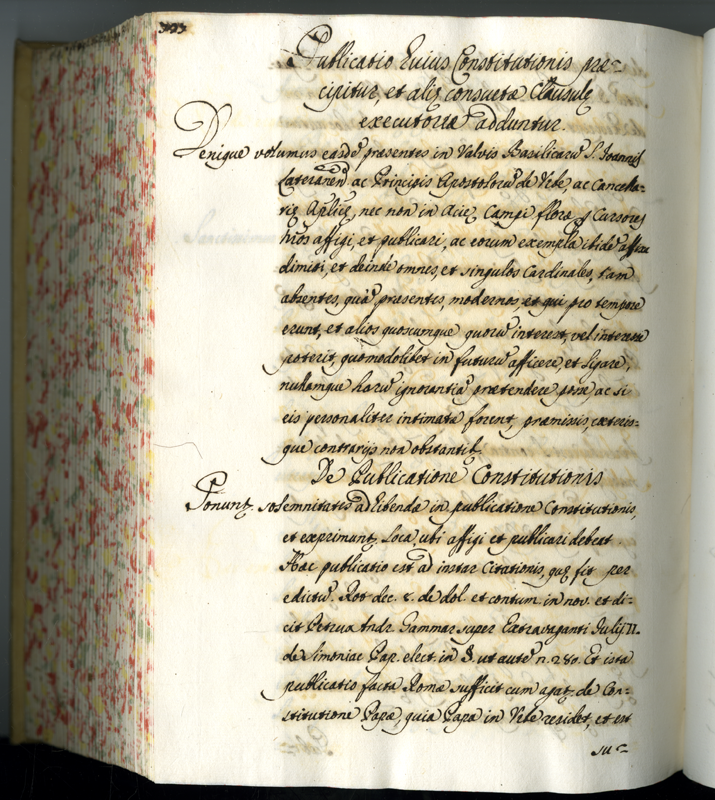 Publicatio huius Constitutionis præ=
cipitur, et alię consuetæ Clausulę
executoriæ adduntur.
Denique volumus easdē presentes in Valvis Basilicarū S. Joannis
Lateranen̄ ac Principis Apostolorū de Urbe, ac Cancella=
rię Aplicę, nec non in Acie Campi floræ p Cursores
nr̄os affigi, et publicari, ac eorum exempla ibidē affixa
dimitti, et deinde omnes, et singulos Cardinales, tam
absentes, quā presentes, modernos, et qui pro tempore
erunt, et alios quoscumque quorū interest, vel interesse
poterit, quomodolibet in futurū afficere, et ligare,
nullamque harū ignorantiā prætendere posse ac si
eis personaliter intimatæ forent, præmissis, cæteris=
que contrarijs non obstantib.
De Publicatione Constitutionis
Ponunt solemnitatis adhibendæ in publicatione Constitutionis,
et exprimunt Loca, ubi affigi et publicari debeat.
Hæc publicatio est ad instar Citationis, quę fit per
edictū. Rot dec. 8. de dol. et contum. in nov. et di=
cit Petrus Andr. Gammar super Extravaganti Julij II.
de Simoniac Pap. elect. in §. ut autē n. 280. Et ista
publicatio facta Romæ sufficit cum agat de Con=
stitutione Papæ, quia Papa in Urbe residet, et est
su=